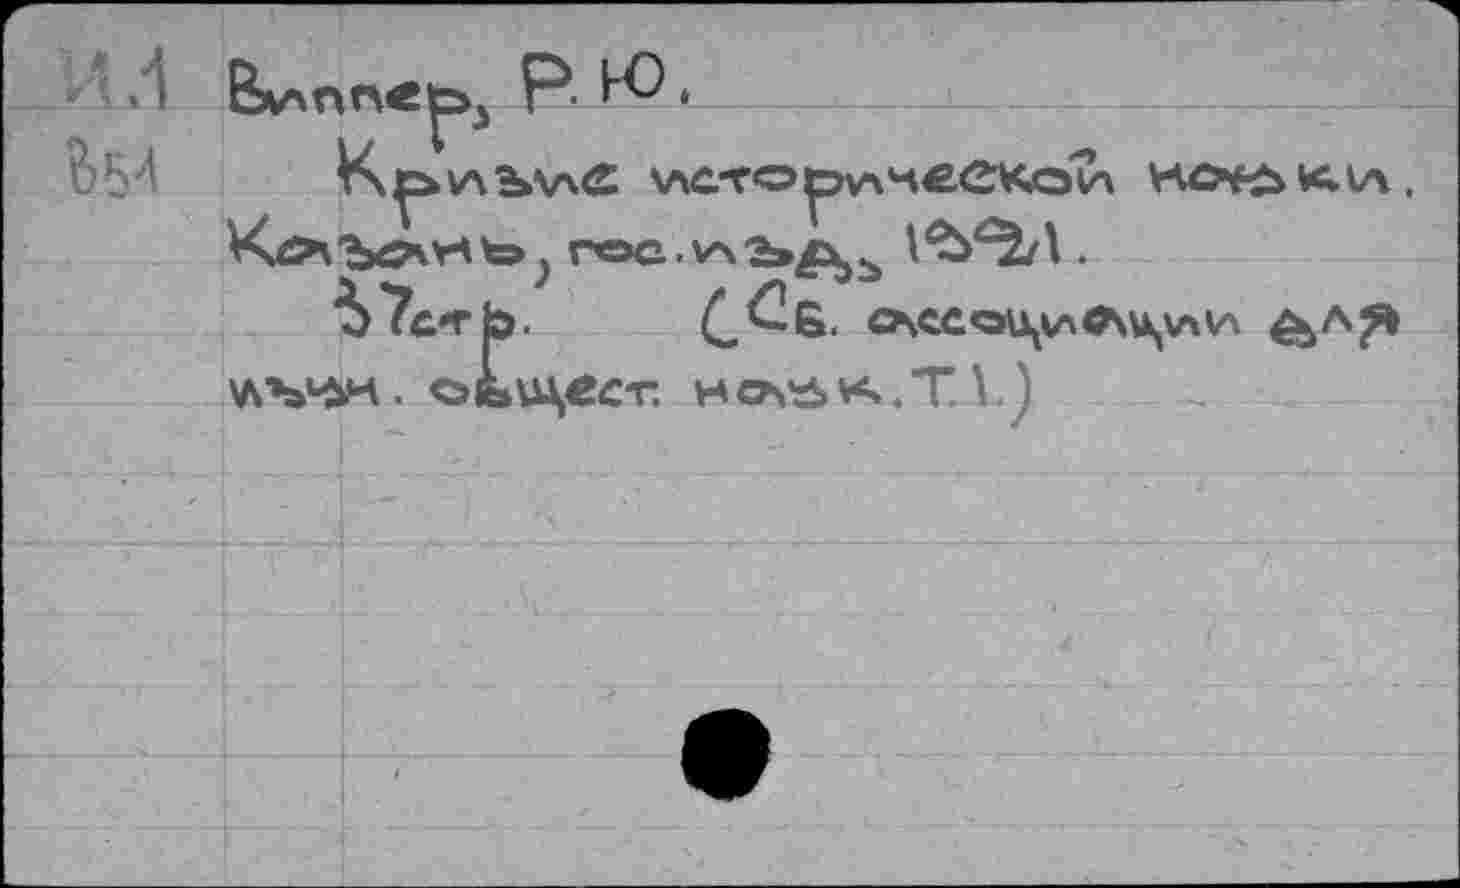 И.1 Виппер, Р. Ю.
В51 Кризис исторической науки.
Казань, гос. изд., 1921.
37стр. (Сб. ассоциации для
изуч. общест. наук. Т.1.)